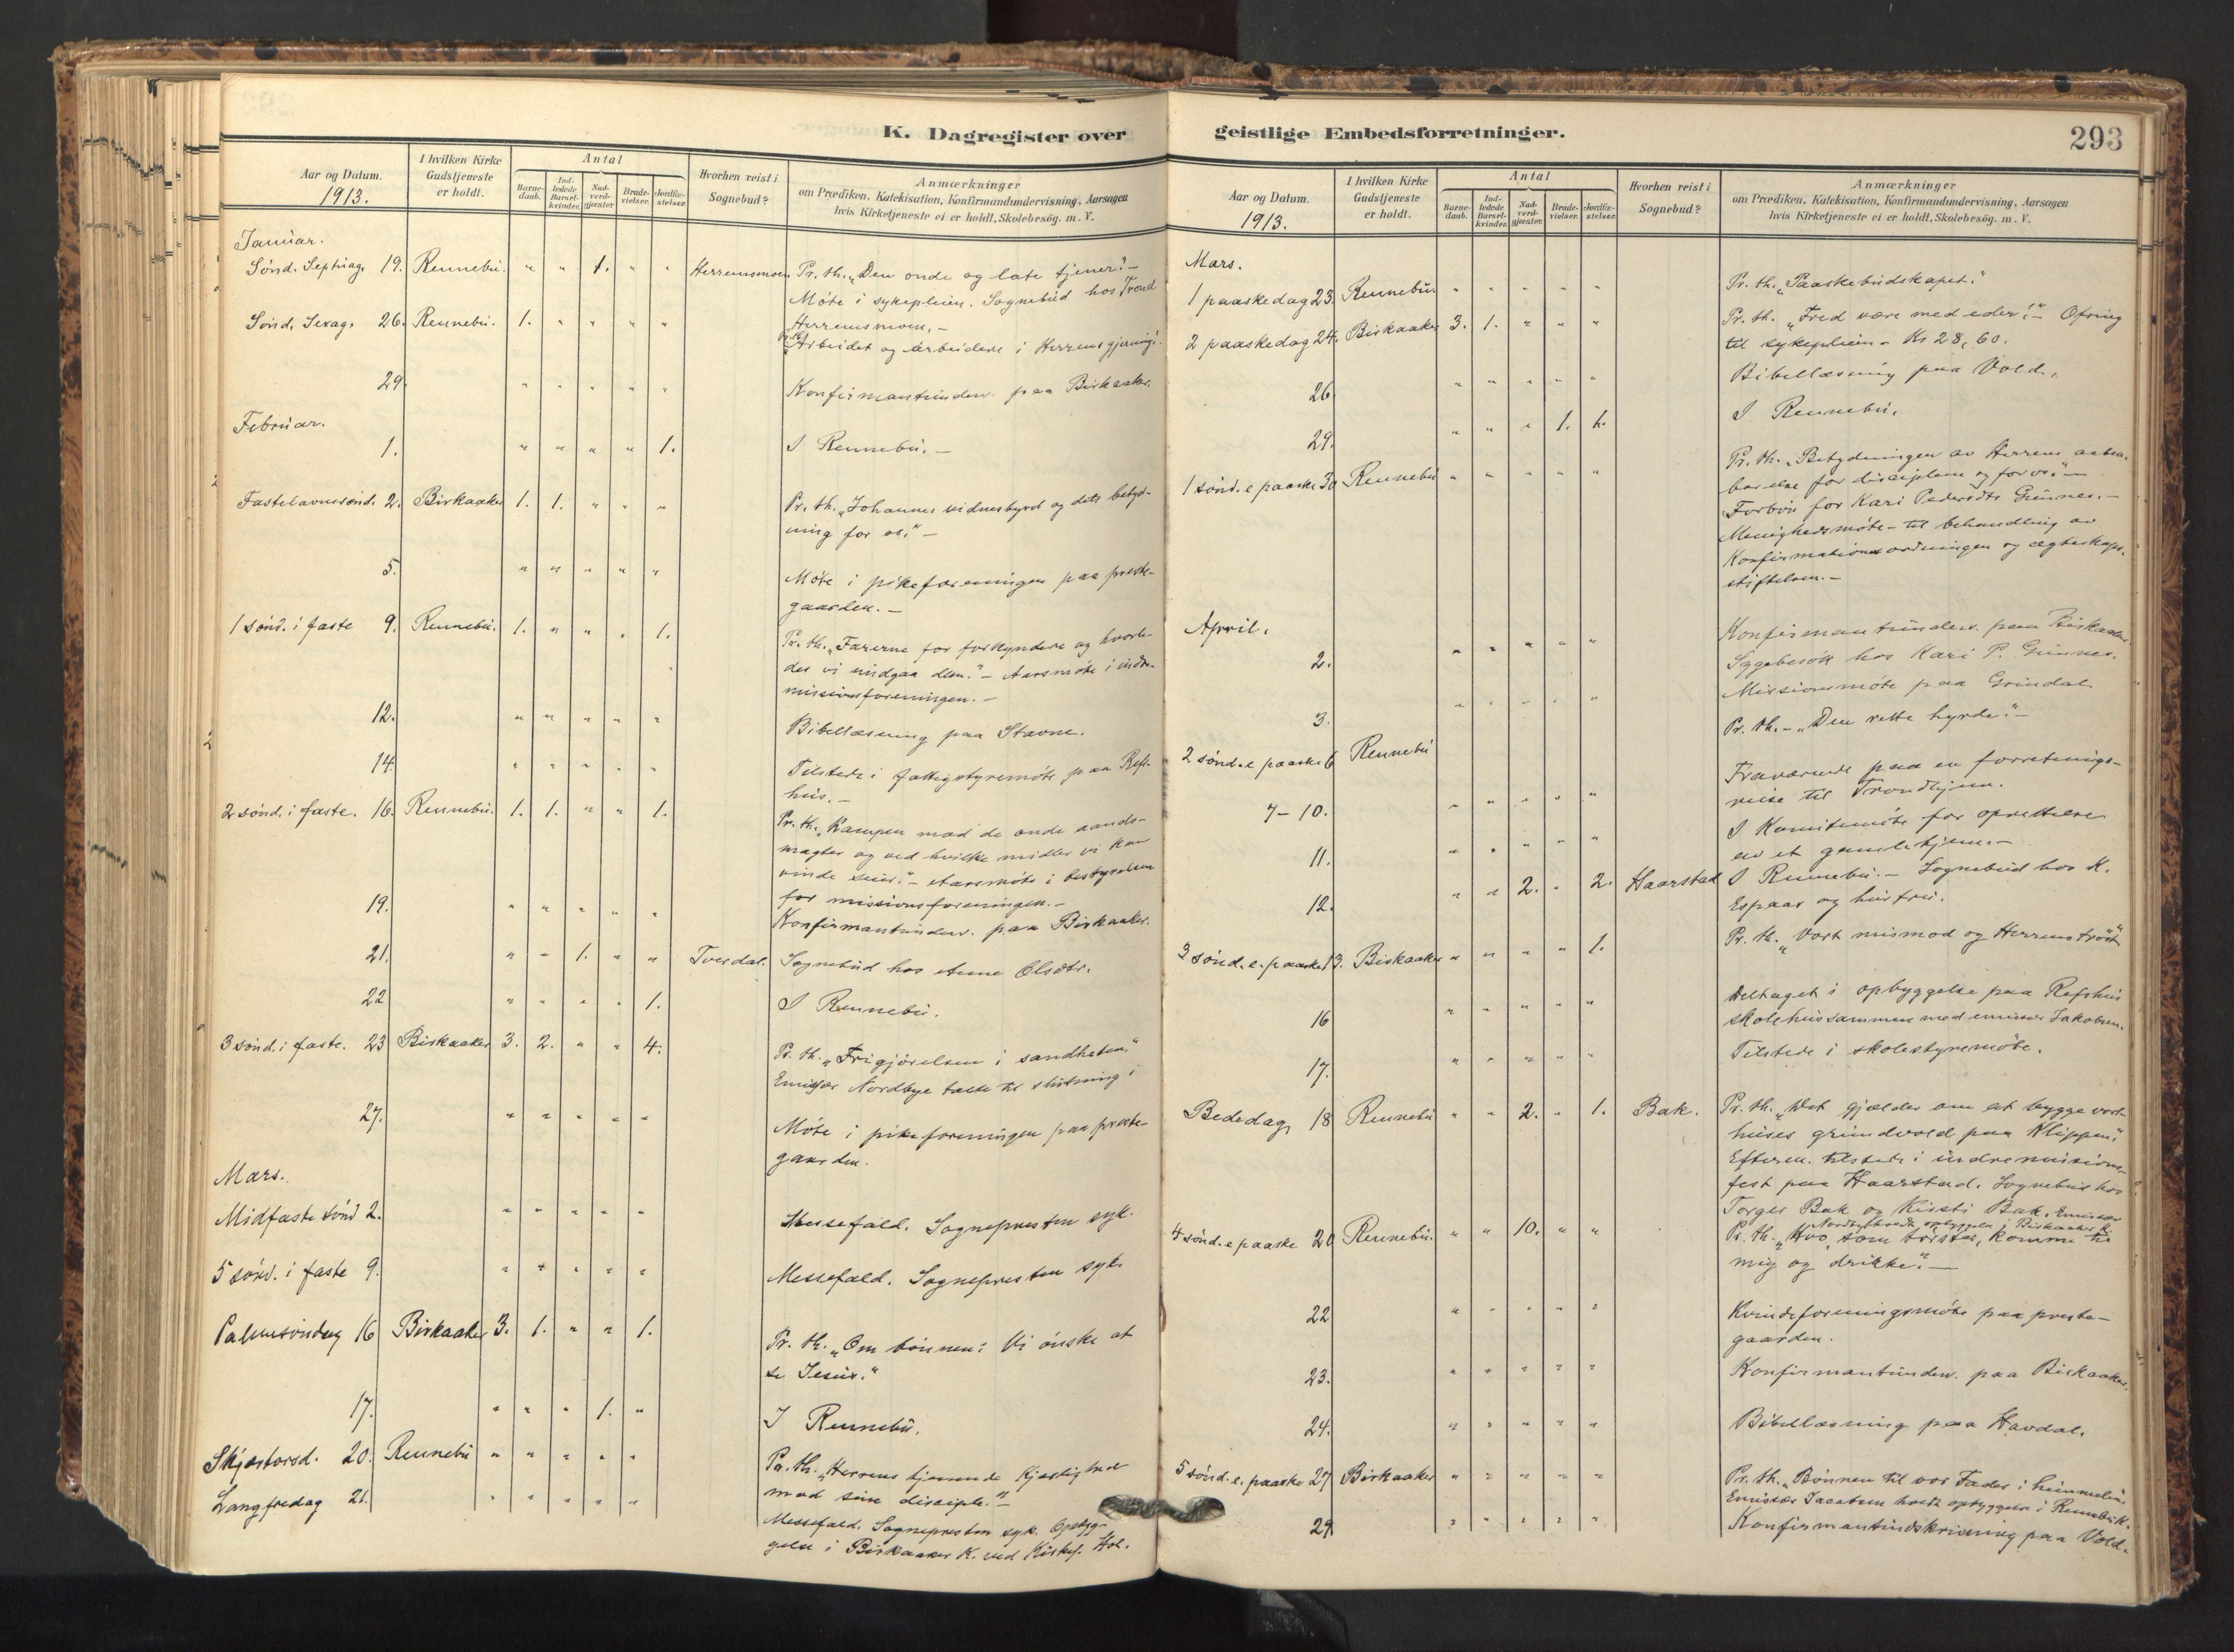 K. Dagregister over
Aar og Datum.
1913.
I hvilken Kirke Gudstjeneste er holdt.
Antal
Barne-daab.
Ind-ledede Barsel-kvinder.
Nad-verd-gjæster.
Brude-vielser.
Jordfæ-stelser.
Hvorhen reist i Sognebud?
Anmærkninger
om Prædiken, Katekisation, Konfirmandundervisning, Aarsagen
hvis Kirketjeneste ei er holdt, Skolebesög. m. V.
Januar.
Sønd. Septuag. 19. Rennebu. " " 1. " " Herremsmoen Pr. th. „Den onde og late tjener." –
Møte i sykepleien. Sognebud hos Trond
Herremsmoen. –
Sønd. Sexag. 26. Rennebu. 1. " " " " Pr. th. „Arbeidet og arbeidere i Herrens gjerning".
29. " " " " " Konfirmantunderv. paa Birkaaker.
Februar.
1. " " " " 1. I Rennebu. –
Fastelavnssønd. 2. Birkaaker 1. 1. " " " Pr. th. „Johannes vidnesbyrd og dets betyd-
ning for os." –
5. " " " " " Møte i pikeforeningen paa preste-
gaarden. –
1 sønd. i faste 9. Rennebu. 1. " " " 1. Pr. th. „Farerne for forkyndere og hvorle-
des vi undgaa dem." – Aarsmøte i indre-
missionsforeningen. –
12. " " " " " Bibellæsning paa Stavne.
14. " " " " " Tilstede i fattigstyremøte paa Refs-
hus. –
2 sønd. i faste. 16. Rennebu. 1. 1. " " 1. Pr. th. „Kampen mod de onde aands-
magter og ved hvilke midler vi kan
vinde seier." – Aarsmøte i bestyrelsen
for missionsforeningen. –
19. " " " " " Konfirmantunderv. paa Birkaaker.
21. " " 1. " " Tverdal. Sognebud hos Anne Olsdtr.
22 " " " " 1. I Rennebu.
3 sønd. i faste. 23 Birkaaker 3. 2. " " 4. Pr. th. „Frigjørelsen i sandheten."
Emissær Nordbye talte til slutning i
27. " " " " " Møte i pikeforeningen paa preste-
gaarden.
Mars.
Midfaste sønd 2. " " " " " Messefald. Sognepresten syk.
5 sønd. i faste 9. " " " " " Messefald. Sognepresten syk.
Palmesøndag 16 Birkaaker 3. 1. " " 1. Pr. th. „Om bønnen: Vi ønske at
se Jesus."
17. " " " 1. " I Rennebu.
Skjærtorsd. 20. Rennebu " " " " " Pr. th. „Herrens tjenende kjærlighed
mod sine disciple." –
Langfredag 21. " " " " " Messefald. Sognepresten syk. Opbyg-
gelse i Birkaaker K. ved Kirkes. Hol.
geistlige Embedsforretninger.
293
Aar og Datum.
1913.
I hvilken Kirke Gudstjeneste er holdt.
Antal
Barne-daab.
Ind-ledede Barsel-kvinder.
Nad-verd-gjæster.
Brude-vielser.
Jordfæ-stelser.
Hvorhen reist i Sognebud?
Anmærkninger
om Prædiken, Katekisation, Konfirmandundervisning, Aarsagen
hvis Kirketjeneste ei er holdt, Skolebesög. m. V.
Mars.
1 paaskedag 23. Rennebu. " " " " " Pr. th. „Paaskebudskapet."
2 paaskedag 24. Birkaaker 3. 1. " " " Pr. th. „Fred være med eder!" – Ofring
til sykepleien – Kr 28,60.
26. " " " " " Bibellæsning paa Vold.
29. " " " 1. 1. I Rennebu.
1 sønd. e paaske 30 Rennebu " " " " " Pr. th. „Betydningen av Herrens aaben-
barelse for disciplene og for os." –
Forbøn for Kari Pedersdtr Gunnes. –
Menighedsmøte – til behandling av
Konfirmationsordningen og ægteskaps-
stiftelsen. –
April.
2. " " " " " Konfirmantunderv. paa Birkaaker
Sygebesøk hos Kari P. Gunnes.
3. " " " " " Missionsmøte paa Grindal
2 sønd. e paaske 6 Rennebu Pr. th. – „Den rette hyrde." –
7 – 10. " " " " " Fraværende paa en forretnings-
reise til Trondhjem.
11. " " " " " I Komitemøte for oprettelse
av et gamlehjem. –
12. " " 2. " 2. Haarstad I Rennebu. – Sognebud hos K.
Espaas og hustru.
3 sønd. e. paaske 13. Birkaaker " " " " 1. Pr. th. „Vort mismod og Herrens trøst"
16 " " " " " Deltaget i opbyggelse paa Refshus
skolehus sammen med emissær Jakobsen.
17. " " " " " Tilstede i skolestyremøte.
Bededag 18 Rennebu " " 2. " 1. Bak. Pr. th. „Det gjælder om at bygge vort
huses grundvold paa Klippen."
Efterm. tilstede i indremissions-
fest paa Haarstad. Sognebud hos
Torger Bak og Kirsti Bak. Emissær
Nordbye holdt opbyggelse i Birkaaker K.
4 sønd. e paaske 20 Rennebu. " " 10. " " Pr. th. „Hvo, som tørster, komme til
mig og drikke." –
22 " " " " " Kvindeforeningsmøte paa preste-
gaarden.
23. " " " " " Konfirmantunderv. paa Birkaaker.
24. " " " " " Bibellæsning paa Havdal.
5 sønd. e. paaske 27 Birkaaker " " " " " Pr. th. „Bønnen til vor Fader i himmelen."
Emissær Jacobsen holdt opbyggelse i Rennebu K.
29. " " " " " Konfirmantindskrivning paa Vold.